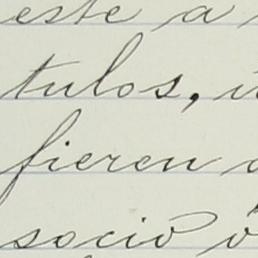 este a
tulos,
fieren
socio ó